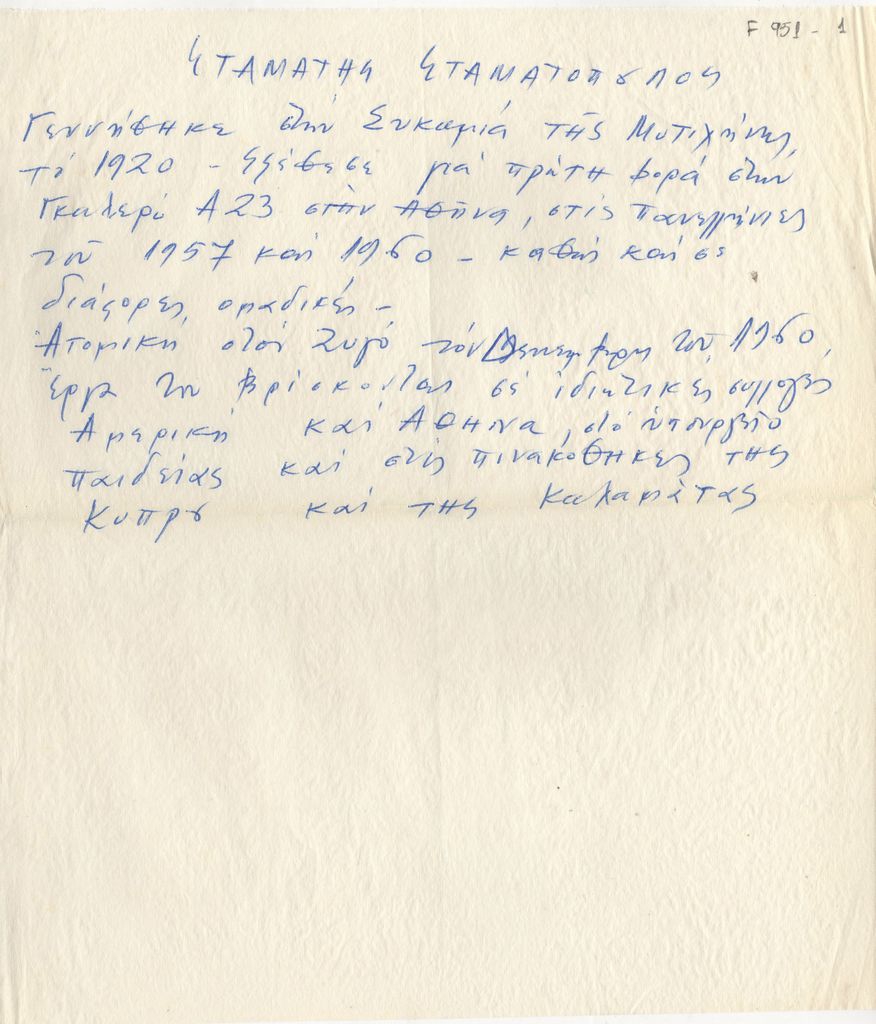 F 951 - 1
ΣΤΑΜΑΤΗΣ ΣΤΑΜΑΤΟΠΟΥΛΟΣ
Γεννήθηκε στήν Συκαμιά τῆς Μυτιλήνης,
τό 1920 - Ἐξέθεσε γιά πρώτη φορά στήν
Γκαλερί Α23 στὴν Ἀθήνα, στίς Πανελλήνιες
τοῦ 1957 καί 1960 - καθώς καί σέ
διάφορες ομαδικές -
Ἀτομική στόν Ζυγό τόν Δεκέμβρη τοῦ 1960,
Ἔργα του βρίσκονται σέ ἰδιωτικές συλλογές
Αμερική καί ΑΘΗνα, στό ὑπουργεῖο
παιδείας καί στίς πινακοθήκες της
Κύπρου καί της Καλαμάτας